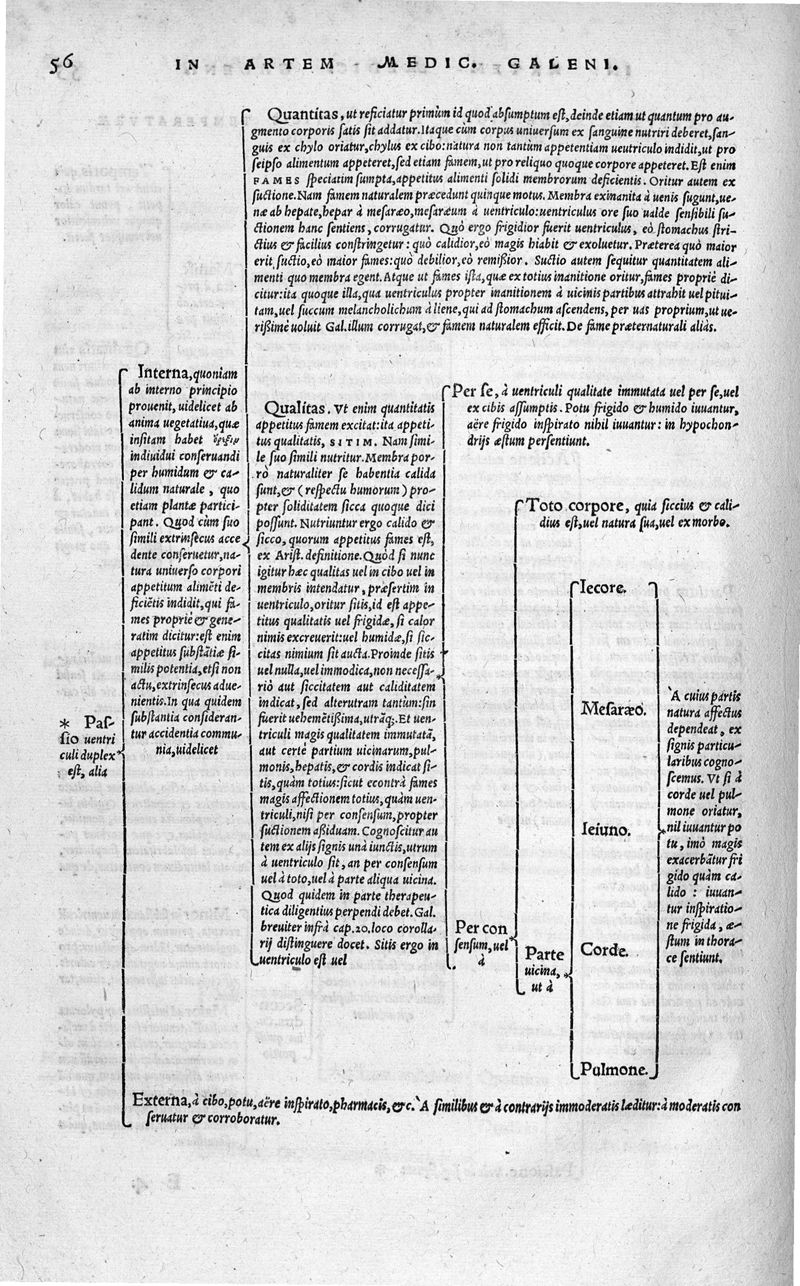 56 IN ARTEM MEDIC. GALENI.
Quantitas, ut reficiatur primùm id quod absumptum est, deinde etiam ut quantum pro au-
gmento corporis satis sit addatur. Itaque cùm corpus uniuersum ex sanguine nutriri deberet, san-
guis ex chylo oriatur, chylus ex cibo: natura non tantùm appetentiam uentriculo indidit, ut pro
seipso alimentum appeteret, sed etiam famem, ut pro reliquo quoque corpore appeteret. Est enim
FAMES speciatim sumpta, appetitus alimenti solidi membrorum deficientis. Oritur autem ex
suctione. Nam famem naturalem præcedunt quinque motus. Membra exinanita à uenis sugunt, ue-
næ ab hepate, hepar à mesaræo, mesaræum à uentriculo: uentriculus ore suo ualde sensibili su-
ctionem hanc sentiens, corrugatur. Quò ergo frigidior fuerit uentriculus, eò stomachus stri-
ctius & facilius constringetur: quò calidior, eò magis hiabit & exoluetur. Præterea quò maior
erit suctio, eò maior fames: quò debilior, eò remißior. Suctio autem sequitur quantitatem ali-
menti quo membra egent. Atque ut fames ista, quæ ex totius inanitione oritur, fames propriè di-
citur: ita quoque illa, qua uentriculus propter inanitionem à uicinis partibus attrahit uel pitui-
tam, uel succum melancholichum à liene, qui ad stomachum ascendens, per uas proprium, ut ue-
rißimè uoluit Gal. illum corrugat, & famem naturalem efficit. De fame præternaturali aliàs.
* Pas-
sio uentri
culi duplex
est, alia
Interna, quoniam
ab interno principio
prouenit, uidelicet ab
anima uegetatiua, quæ
insitam habet
indiuidui conseruandi
per humidum & ca-
lidum naturale, quo
etiam plantæ partici-
pant. Quod cùm suo
simili extrinsecus acce
dente conseruetur, na-
tura uniuerso corpori
appetitum alimẽti de-
ficiẽtis indidit, qui fa-
mes propriè & gene-
ratim dicitur: est enim
appetitus substãtiæ si-
milis potentia, etsi non
actu, extrinsecus adue-
nientis. In qua quidem
substantia consideran-
tur accidentia commu-
nia, uidelicet
Qualitas. Vt enim quantitatis
appetitus famem excitat: ita appeti-
tus qualitatis, SITIM. Nam simi-
le suo simili nutritur. Membra por-
rò naturaliter se habentia calida
sunt, & (respectu humorum) pro-
pter soliditatem sicca quoque dici
possunt. Nutriuntur ergo calido &
sicco, quorum appetitus fames est,
ex Arist. definitione. Quòd si nunc
igitur hæc qualitas uel in cibo uel in
membris intendatur, præsertim in
uentriculo, oritur sitis, id est appe-
titus qualitatis uel frigidæ, si calor
nimis excreuerit: uel humidæ, si sic-
citas nimium sit aucta. Proinde sitis
uel nulla, uel immodica, non necessa-
riò aut siccitatem aut caliditatem
indicat, sed alterutram tantùm: sin
fuerit uehemẽtißima, utrãq;. Et uen-
triculi magis qualitatem immutatã,
aut certè partium uicinarum, pul-
monis, hepatis, & cordis indicat si-
tis, quàm totius: sicut econtrà fames
magis affectionem totius, quàm uen-
triculi, nisi per consensum, propter
suctionem aßiduam. Cognoscitur au
tem ex alijs signis unà iunctis, utrum
à uentriculo sit, an per consensum
uel à toto, uel à parte aliqua uicina.
Quod quidem in parte therapeu-
tica diligentius perpendi debet. Gal.
breuiter infrà cap. 20. loco corolla-
rij distinguere docet. Sitis ergo in
uentriculo est uel
Per se, à uentriculi qualitate immutata uel per se, uel
ex cibis assumptis. Potu frigido & humido iuuantur,
aëre frigido inspirato nihil iuuantur: in hypochon-
drijs æstum persentiunt.
Per con
sensum, uel
à
Toto corpore, quia siccius & cali-
dius est, uel natura sua, uel ex morbo.
Parte
uicina,
ut à
Iecore.
Mesaræo.
Ieiuno.
Corde.
Pulmone.
A cuius partis
natura affectus
dependeat, ex
signis particu-
laribus cogno-
scemus. Vt si à
corde uel pul-
mone oriatur,
nil iuuantur po
tu, imò magis
exacerbãtur fri
gido quàm ca-
lido: iuuan-
tur inspiratio-
ne frigida, æ-
stum in thora-
ce sentiunt.
Externa, à cibo, potu, aëre inspirato, pharmacis, &c. A similibus & à contrarijs immoderatis læditur: à moderatis con
seruatur & corroboratur.